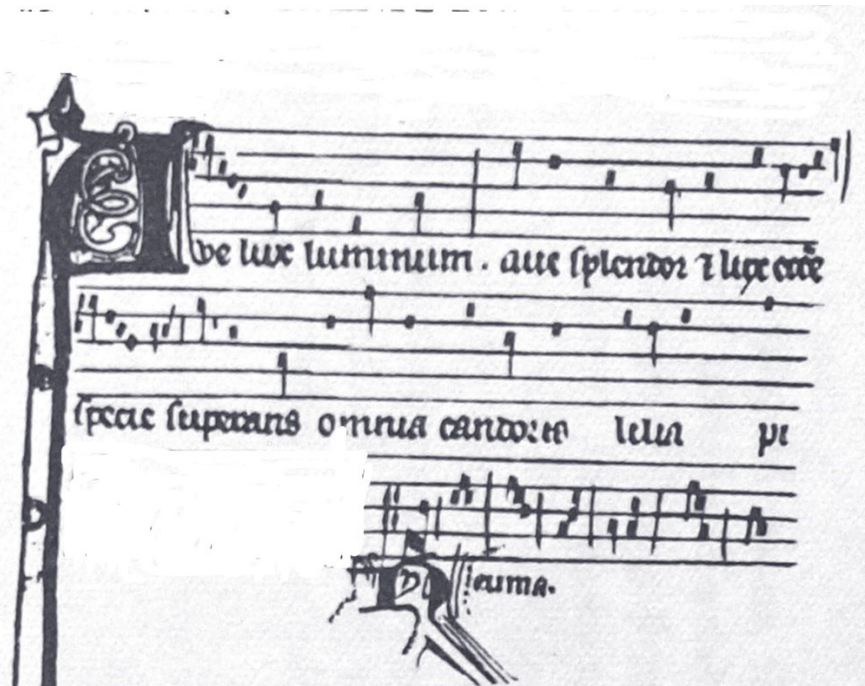 Ave lux luminum . aue splendor ⁊ lux eccẽ
specie superans omnia candores lelia pi
neuma.